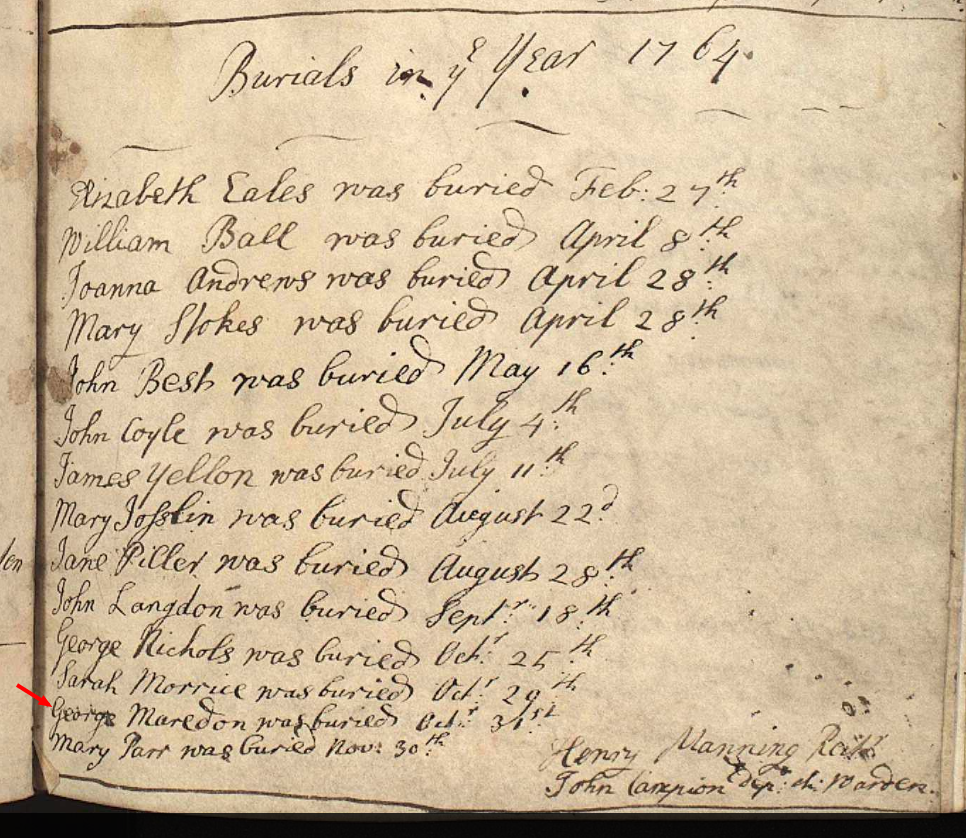 Burials in yᵉ Year 1764.
Elizabeth Eales was buried Feb: 27th
William Ball was buried April 8th
Joanna Andrews was buried April 28th
Mary Stokes was buried April 28th
John Best was buried May 16th
John Coyle was buried July 4th
James Yellon was buried July 11th
Mary Josslin was buried August 22d
Jane Piller was buried August 28th
John Langdon was buried Septr 18th
George Nichols was buried Octr 25th
Sarah Morrice was buried Octr 29th
George Maredon was buried Octr 31st
Mary Parr was buried Nov: 30th
Henry Manning
John Campion Dep: ch: Warden.